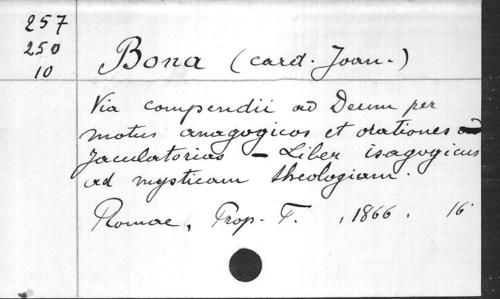 257
250
10
Bona (card. Joan.)
Via compendii ad Deum per
motus anagogicos et orationes
Jaculatorias – Liber isagogicus
ad mysticam theologiam.
Romae, Prop. F., 1866. 16°